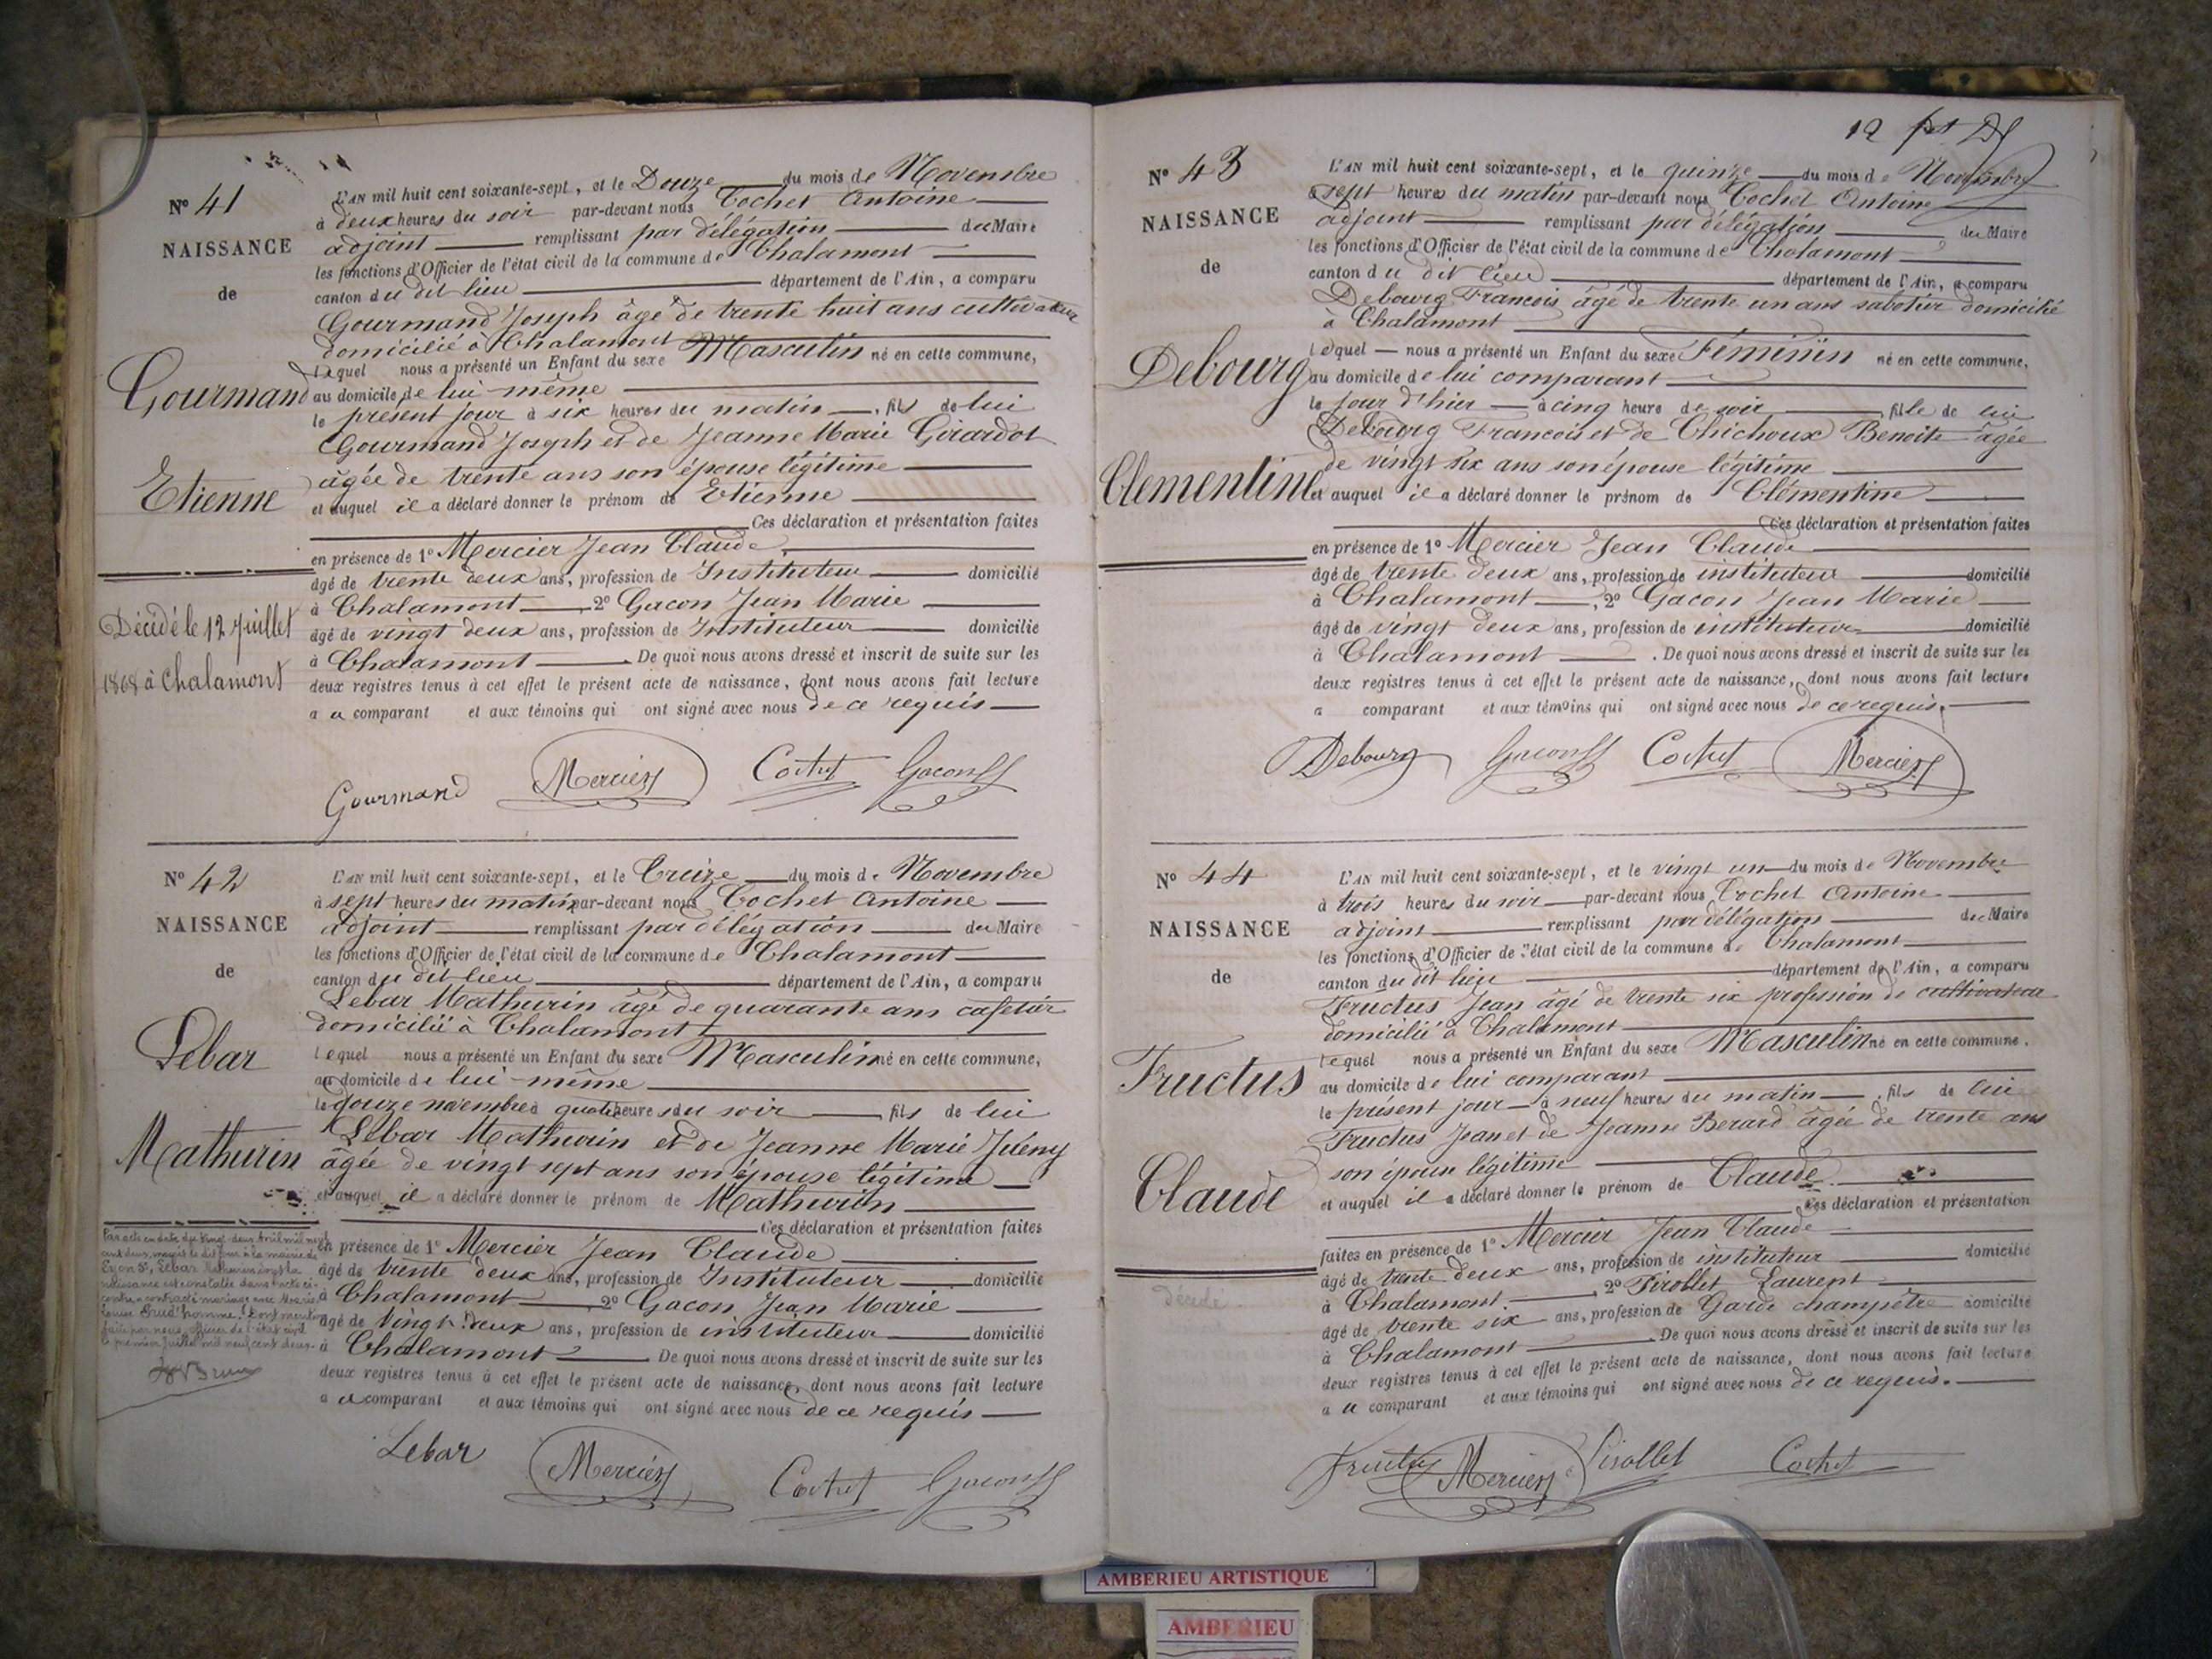 N° 41
NAISSANCE
de
Gourmand
Etienne
Décédé le 12 Juillet
1868 à Chalamont
L'AN mil huit cent soixante-sept, et le Douze du mois de Novembre
à deux heures du soir par-devant nous Cochet Antoine
adjoint remplissant par délégation du Maire
les fonctions d'Officier de l'état civil de la commune de Chalamont
canton du dit lieu département de l'Ain, a comparu
Gourmand Joseph âgé de trente huit ans cultivateur
domicilié à Chalamont
lequel nous a présenté un Enfant du sexe Masculin né en cette commune,
au domicile de lui même
le présent jour à six heures du matin, fils de lui
Gourmand Joseph et de Jeanne Marie Girardot
âgée de trente ans son épouse légitime
et auquel il a déclaré donner le prénom de Etienne
Ces déclaration et présentation faites
en présence de 1° Mercier Jean Claude
âgé de trente deux ans, profession de Instituteur domicilié
à Chalamont, 2° Gacon Jean Marie
âgé de vingt deux ans, profession de Instituteur domicilié
à Chalamont. De quoi nous avons dressé et inscrit de suite sur les
deux registres tenus à cet effet le présent acte de naissance, dont nous avons fait lecture
a u comparant et aux témoins qui ont signé avec nous de ce requis
Gourmand Mercier Cochet Gacon
N° 42
NAISSANCE
de
Lebar
Mathurin
Par acte en date du vingt-deux Avril mil neuf
cent deux, reçu le dit jour à la mairie de
Lyon, Lebar Mathurin dont la
naissance est constatée dans l'acte ci-
contre a contracté mariage avec Marie
Louise Prud'homme. Dont mention
faite par nous, officier de l'état civil
le premier Juillet mil neuf cent deux.
L'AN mil huit cent soixante-sept, et le Treize du mois de Novembre
à sept heures du matin par-devant nous Cochet Antoine
adjoint remplissant par délégation du Maire
les fonctions d'Officier de l'état civil de la commune de Chalamont
canton du dit lieu département de l'Ain, a comparu
Lebar Mathurin âgé de quarante ans cafetier
domicilié à Chalamont
lequel nous a présenté un Enfant du sexe Masculin né en cette commune,
au domicile de lui-même
le douze novembre à quatre heures du soir fils de lui
Lebar Mathurin et de Jeanne Marie Juény
âgée de vingt sept ans son épouse légitime
et auquel il a déclaré donner le prénom de Mathurin
Ces déclaration et présentation faites
en présence de 1° Mercier Jean Claude
âgé de trente deux ans, profession de Instituteur domicilié
à Chalamont 2° Gacon Jean Marie
âgé de vingt deux ans, profession de instituteur domicilié
à Chalamont De quoi nous avons dressé et inscrit de suite sur les
deux registres tenus à cet effet le présent acte de naissance, dont nous avons fait lecture
a u comparant et aux témoins qui ont signé avec nous de ce requis
Lebar Mercier Cochet Gacon
12
N° 43
NAISSANCE
de
Debourg
Clementine
L'AN mil huit cent soixante-sept, et le quinze du mois de Novembre
à sept heures du matin par-devant nous Cochet Antoine
adjoint remplissant par délégation du Maire
les fonctions d'Officier de l'état civil de la commune de Chalamont
canton du dit lieu département de l'Ain, a comparu
Debourg Francois âgé de trente un ans sabotier domicilié
à Chalamont
lequel nous a présenté un Enfant du sexe Féminin né en cette commune,
au domicile de lui comparant
le jour d'hier à cinq heure de soir, fille de lui
Debourg Francois et de Chichoux Benoite âgée
de vingt six ans son épouse légitime
et auquel il a déclaré donner le prénom de Clémentine
Ces déclaration et présentation faites
en présence de 1° Mercier Jean Claude
âgé de trente deux ans, profession de instituteur domicilié
à Chalamont, 2° Gacon Jean Marie
âgé de vingt deux ans, profession de instituteur domicilié
à Chalamont. De quoi nous avons dressé et inscrit de suite sur les
deux registres tenus à cet effet le présent acte de naissance, dont nous avons fait lecture
a comparant et aux témoins qui ont signé avec nous de ce requis.
Debourg Gacon Cochet Mercier
N° 44
NAISSANCE
de
Fructus
Claude
Décédé
L'AN mil huit cent soixante-sept, et le vingt un du mois de Novembre
à trois heures du soir par-devant nous Cochet Antoine
adjoint remplissant par délégation du Maire
les fonctions d'Officier de l'état civil de la commune de Chalamont
canton du dit lieu département de l'Ain, a comparu
Fructus Jean âgé de trente six profession de cultivateur
domicilié à Chalamont
lequel nous a présenté un Enfant du sexe Masculin né en cette commune.
au domicile de lui comparant
le présent jour à neuf heures du matin, fils de lui
Fructus Jean et de Jeanne Berard âgée de trente ans
son épouse légitime
et auquel il a déclaré donner le prénom de Claude.
Ces déclaration et présentation
faites en présence de 1° Mercier Jean Claude
âgé de trente deux ans, profession de instituteur domicilié
à Chalamont, 2° Pirollet Laurent
âgé de trente six ans, profession de Garde champêtre domicilié
à Chalamont De quoi nous avons dressé et inscrit de suite sur les
deux registres tenus à cet effet le présent acte de naissance, dont nous avons fait lecture
a u comparant et aux témoins qui ont signé avec nous de ce requis.
Fructus Mercier Pirollet Cochet
AMBERIEU ARTISTIQUE
AMBERIEU